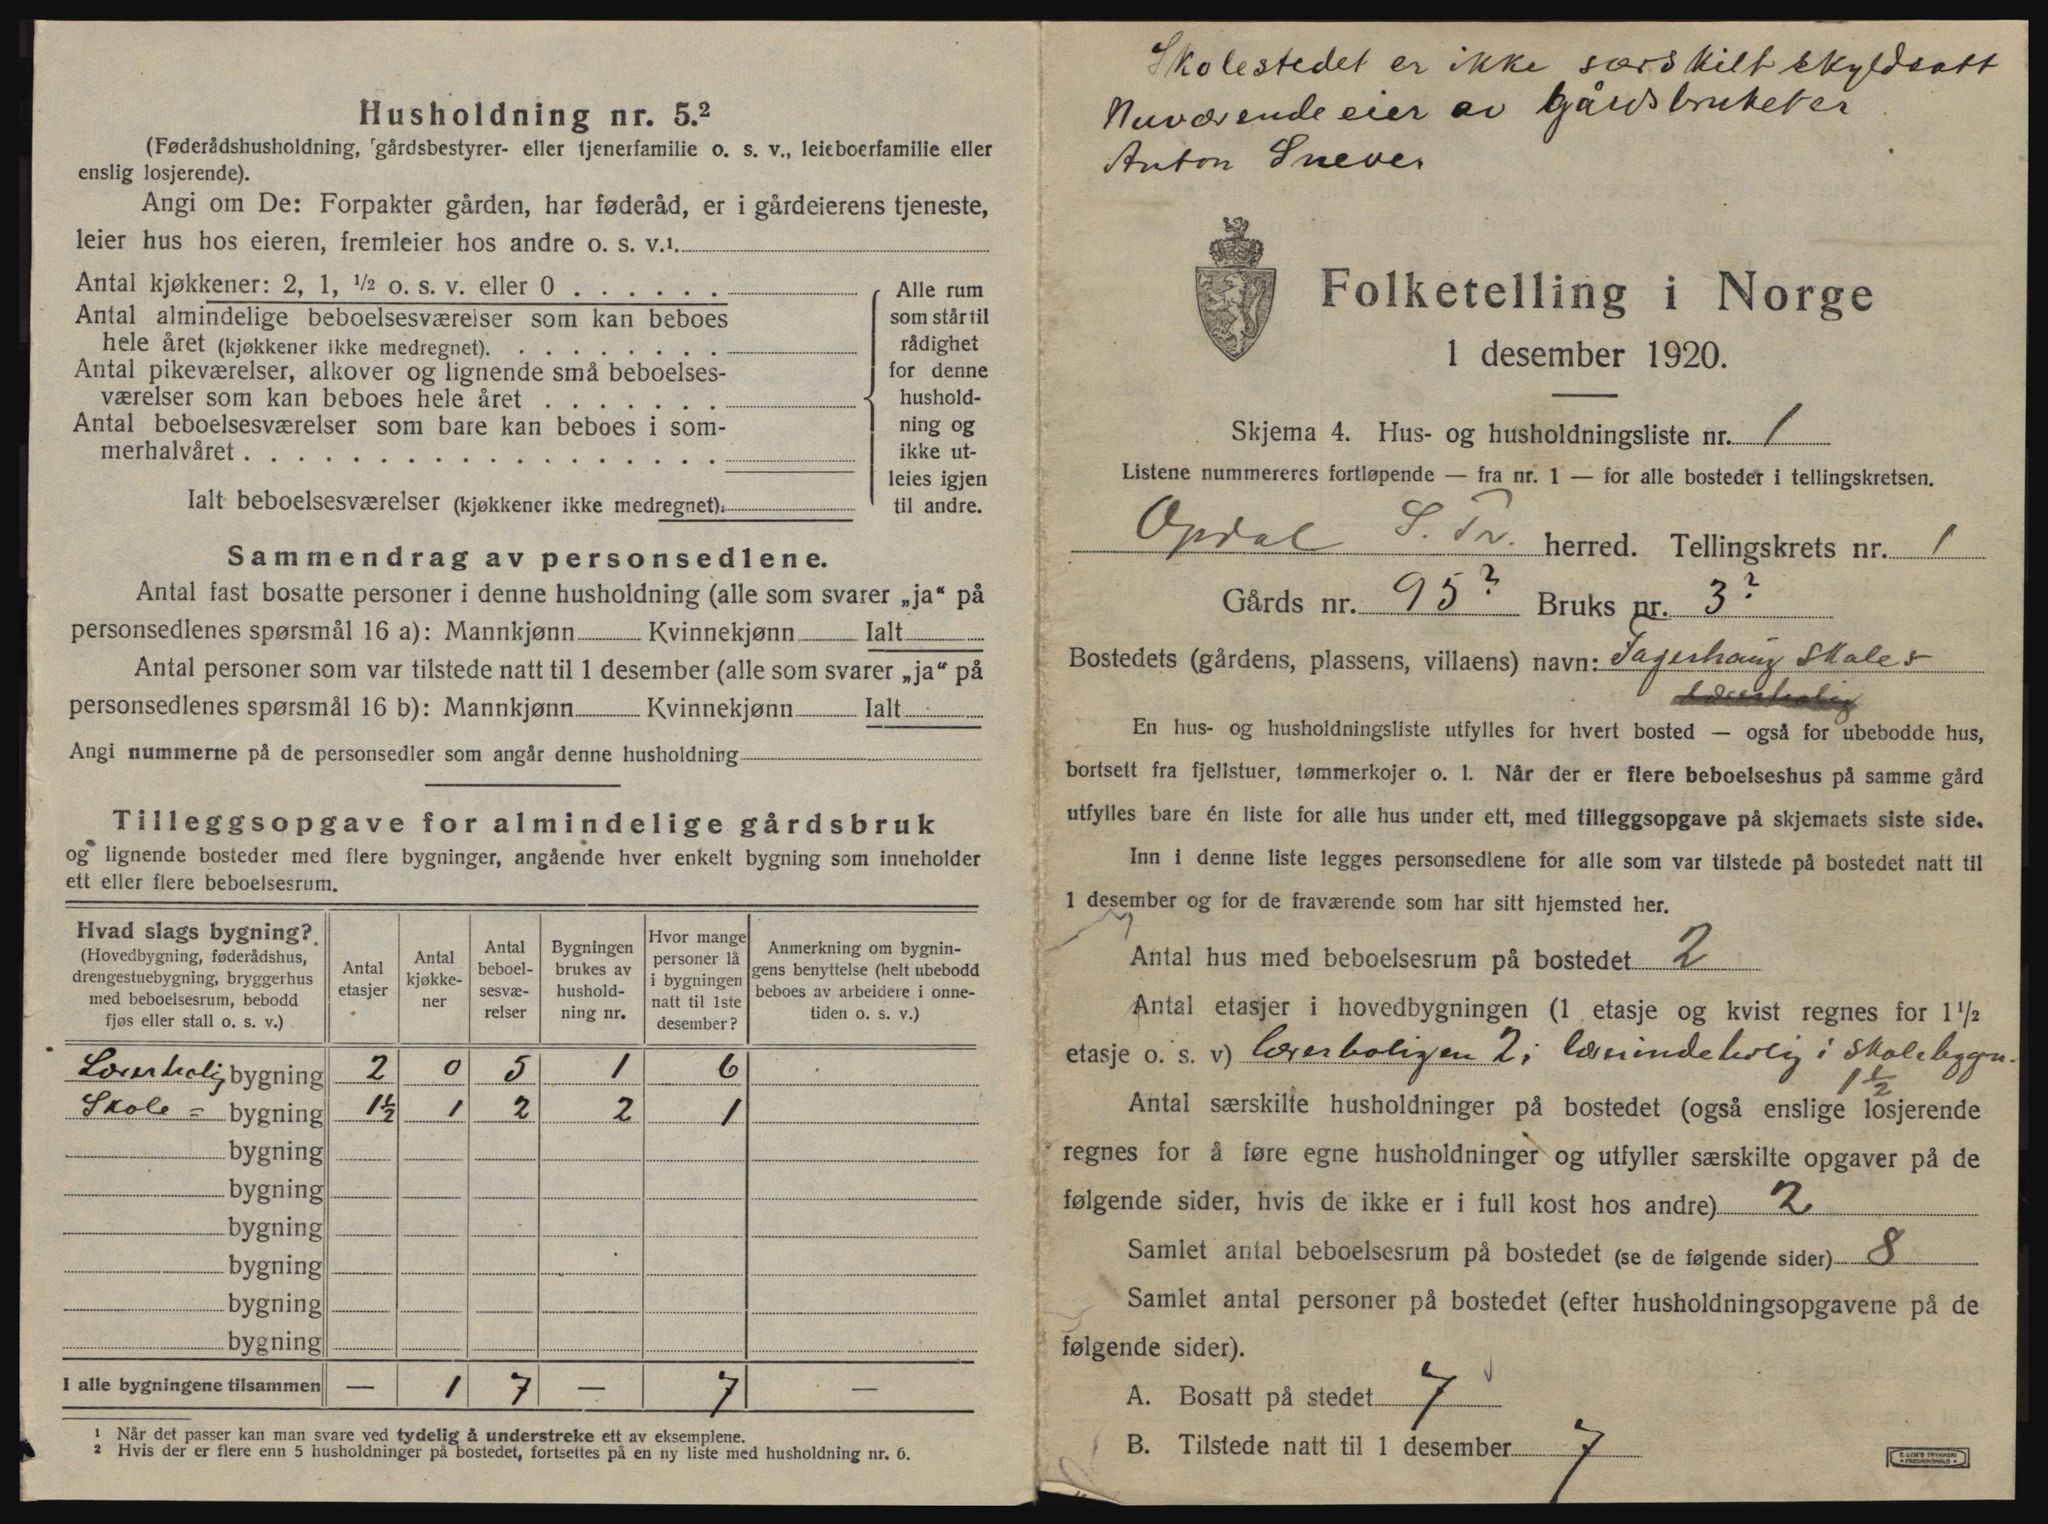 Husholdning nr. 5.²
(Føderådshusholdning, gårdsbestyrer- eller tjenerfamilie o. s. v., leieboerfamilie eller
enslig losjerende).
Angi om De: Forpakter gården, har føderåd, er i gårdeierens tjeneste,
leier hus hos eieren, fremleier hos andre o. s. v.¹
Antal kjøkkener: 2, 1, ½ o. s. v. eller 0 . . . . . .
Antal almindelige beboelsesværelser som kan beboes
hele året (kjøkkener ikke medregnet). . . . . . . . .
Antal pikeværelser, alkover og lignende små beboelses-
værelser som kan beboes hele året . . . . . . .
Antal beboelsesværelser som bare kan beboes i som-
merhalvåret . . . . . . . . . . . . . . . . . .
Ialt beboelsesværelser (kjøkkener ikke medregnet).
Alle rum
som står til
rådighet
for denne
hushold-
ning og
ikke ut-
leies igjen
til andre.
Sammendrag av personsedlene.
Antal fast bosatte personer i denne husholdning (alle som svarer „ja“ på
personsedlenes spørsmål 16 a): Mannkjønn Kvinnekjønn Ialt
Antal personer som var tilstede natt til 1 desember (alle som svarer „ja“ på
personsedlenes spørsmål 16 b): Mannkjønn Kvinnekjønn Ialt
Angi nummerne på de personsedler som angår denne husholdning
Tilleggsopgave for almindelige gårdsbruk
og lignende bosteder med flere bygninger, angående hver enkelt bygning som inneholder
ett eller flere beboelsesrum.
Hvad slags bygning?
(Hovedbygning, føderådshus,
drengestuebygning, bryggerhus
med beboelsesrum, bebodd
fjøs eller stall o. s. v.)
Antal
etasjer
Antal
kjøkke-
ner
Antal
beboel-
sesvæ-
relser
Bygningen
brukes av
hushold-
ning nr.
Hvor mange
personer lå
i bygningen
natt til 1ste
desember?
Anmerkning om bygnin-
gens benyttelse (helt ubebodd
beboes av arbeidere i onne-
tiden o. s. v.)
Lærerbolig bygning 2 0 5 1 6
Skole = bygning 1½ 1 2 2 1
bygning
bygning
bygning
bygning
bygning
bygning
I alle bygningene tilsammen — 1 7 — 7 —
¹ Når det passer kan man svare ved tydelig å understreke ett av eksemplene.
² Hvis der er flere enn 5 husholdninger på bostedet, fortsettes på en ny liste med husholdning nr. 6.
Skolestedet er ikke særskilt skyldsatt
Nuværende eier av Gårdsbruket er
Anton Snever
Folketelling i Norge
1 desember 1920.
Skjema 4. Hus- og husholdningsliste nr. 1
Listene nummereres fortløpende — fra nr. 1 — for alle bosteder i tellingskretsen.
Opdal S. Tr. herred. Tellingskrets nr. 1
Gårds nr. 95? Bruks nr. 3?
Bostedets (gårdens, plassens, villaens) navn: Fagerhaug skoles
lærerbolig
En hus- og husholdningsliste utfylles for hvert bosted — også for ubebodde hus,
bortsett fra fjellstuer, tømmerkojer o. l. Når der er flere beboelseshus på samme gård
utfylles bare én liste for alle hus under ett, med tilleggsopgave på skjemaets siste side.
Inn i denne liste legges personsedlene for alle som var tilstede på bostedet natt til
1 desember og for de fraværende som har sitt hjemsted her.
Antal hus med beboelsesrum på bostedet 2
Antal etasjer i hovedbygningen (1 etasje og kvist regnes for 1½
etasje o. s. v) lærerboligen 2; lærerindebolig i skolebygn.
1½
Antal særskilte husholdninger på bostedet (også enslige losjerende
regnes for å føre egne husholdninger og utfyller særskilte opgaver på de
følgende sider, hvis de ikke er i full kost hos andre) 2
Samlet antal beboelsesrum på bostedet (se de følgende sider) 8
Samlet antal personer på bostedet (efter husholdningsopgavene på de
følgende sider).
A. Bosatt på stedet 7
B. Tilstede natt til 1 desember 7
E. SEM'S TRYKKERI
FREDRIKSHALD